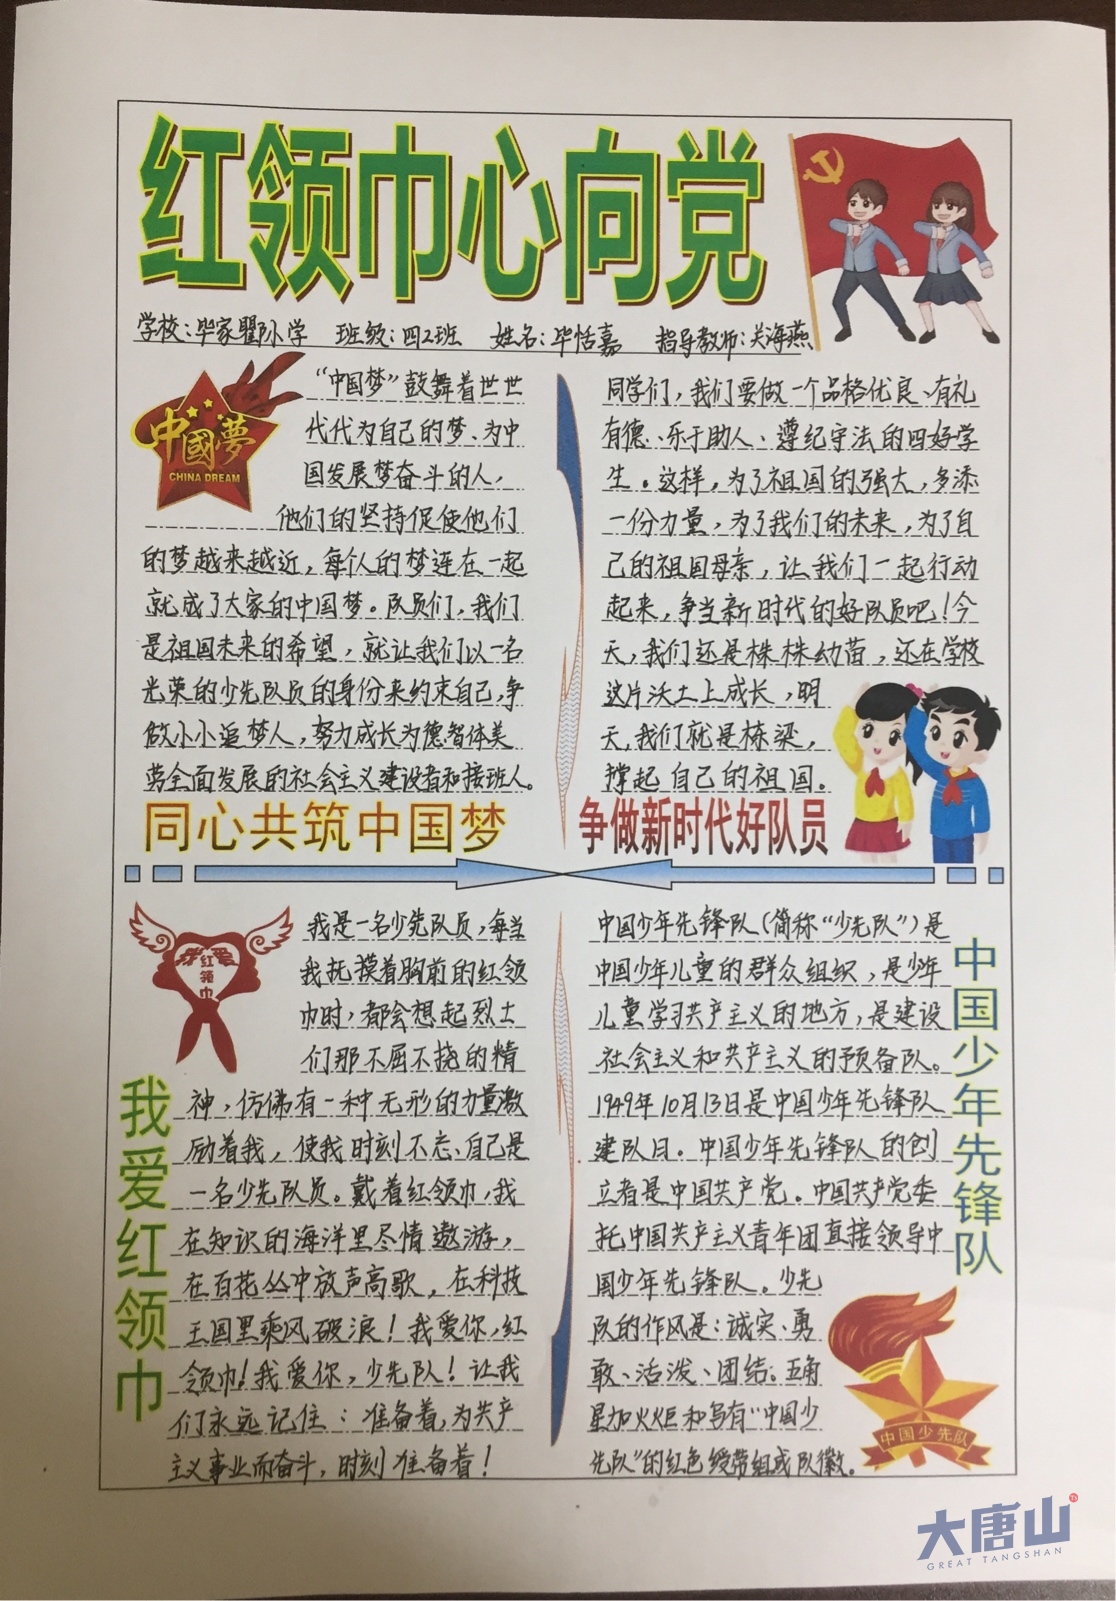 红领巾心向党
学校:毕家瞿阝小学 班级:四2班 姓名:毕恬嘉 指导教师:关海燕
中國夢
CHINA DREAM
“中国梦”鼓舞着世世
代代为自己的梦、为中
国发展梦奋斗的人,
他们的坚持促使他们
的梦越来越近,每个人的梦连在一起
就成了大家的中国梦。队员们,我们
是祖国未来的希望,就让我们以一名
光荣的少先队员的身份来约束自己,争
做小小追梦人,努力成长为德智体美
劳全面发展的社会主义建设者和接班人。
同心共筑中国梦
同学们,我们要做一个品格优良、有礼
有德、乐于助人、遵纪守法的四好学
生。这样,为了祖国的强大,多添
一份力量,为了我们的未来,为了自
己的祖国母亲,让我们一起行动
起来,争当新时代的好队员吧!今
天,我们还是株株幼苗,还在学校
这片沃土上成长,明
天,我们就是栋梁,
撑起自己的祖国。
争做新时代好队员
我爱
红领巾
我爱红领巾
我是一名少先队员,每当
我抚摸着胸前的红领
巾时,都会想起烈士
们那不屈不挠的精
神,仿佛有一种无形的力量激
励着我,使我时刻不忘自己是
一名少先队员。戴着红领巾,我
在知识的海洋里尽情遨游,
在百花丛中放声高歌,在科技
王国里乘风破浪!我爱你,红
领巾!我爱你,少先队!让我
们永远记住:准备着,为共产
主义事业而奋斗,时刻准备着!
中国少年先锋队(简称“少先队”)是
中国少年儿童的群众组织,是少年
儿童学习共产主义的地方,是建设
社会主义和共产主义的预备队。
1949年10月13日是中国少年先锋队
建队日。中国少年先锋队的创
立者是中国共产党。中国共产党委
托中国共产主义青年团直接领导中
国少年先锋队。少先
队的作风是:诚实、勇
敢、活泼、团结。五角
星加火炬和写有“中国少
先队”的红色绶带组成队徽。
中国少年先锋队
中国少先队
大唐山
TS
GREAT TANGSHAN